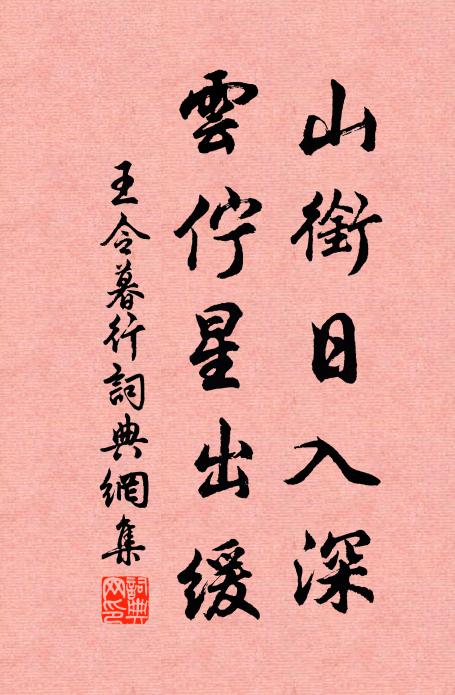 山銜日入深
雲佇星出緩
王令暮行詞典網集
詞典網印